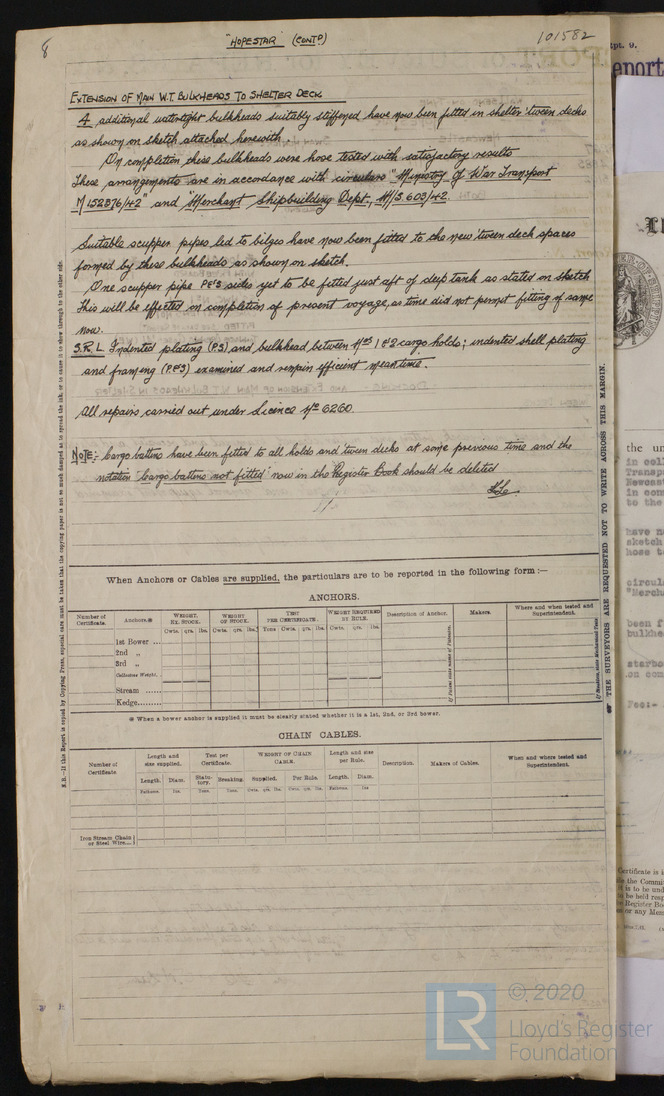 8
"HOPESTAR" (CONTD)
101582
EXTENSION OF MAIN W.T. BULKHEADS TO SHELTER DECK
4 additional watertight bulkheads suitably stiffened have now been fitted in shelter 'tween decks
as shown on sketch attached herewith.
On completion these bulkheads were hose tested with satisfactory results
These arrangements are in accordance with circulars "Ministry of War Transport
M152876/42" and "Merchant Shipbuilding Dept., M/S 603/42.
Suitable scupper pipes led to bilges have now been fitted to the new 'tween deck spaces
formed by these bulkheads as shown on sketch.
One scupper pipe P&S sides yet to be fitted just aft of deep tank as stated on sketch
This will be effected on completion of present voyage, as time did not permit fitting of same
now.
S.R.L. Indented plating (PS) and bulkhead between Nos 1 & 2 cargo holds; indented shell plating
and framing (P&S) examined and remain efficient meantime.
All repairs carried out under Licence No 6260.
NOTE:- Cargo battens have been fitted to all holds and 'tween decks at some previous time and the
notation "Cargo battens not fitted" now in the Register Book should be deleted
When Anchors or Cables are supplied, the particulars are to be reported in the following form :—
ANCHORS.
Number of Certificate. Anchors.※ WEIGHT. EX. STOCK. WEIGHT OF STOCK. TEST PER CERTIFICATE. WEIGHT REQUIRED BY RULE. Description of Anchor. Makers. Where and when tested and Superintendent.
Cwts. qrs. lbs. Cwts. qrs. lbs. Tons Cwts. qrs. lbs. Cwts. qrs. lbs.
1st Bower
2nd „
3rd „
Collective Weight.
Stream
Kedge
※ When a bower anchor is supplied it must be clearly stated whether it is a 1st, 2nd, or 3rd bower.
CHAIN CABLES.
Number of Certificate Length and size supplied. Test per Certificate. WEIGHT OF CHAIN CABLE. Length and size per Rule. Description. Makers of Cables. When and where tested and Superintendent.
Length. Diam. Statutory. Breaking. Supplied. Per Rule. Length. Diam.
Fathoms. Ins. Tons. Tons. Cwts. qrs. lbs. Cwts. qrs. lbs. Fathoms. Ins
Iron Stream Chain or Steel Wire
THE SURVEYORS ARE REQUESTED NOT TO WRITE ACROSS THIS MARGIN.
© 2020
LR
Lloyd's Register
Foundation